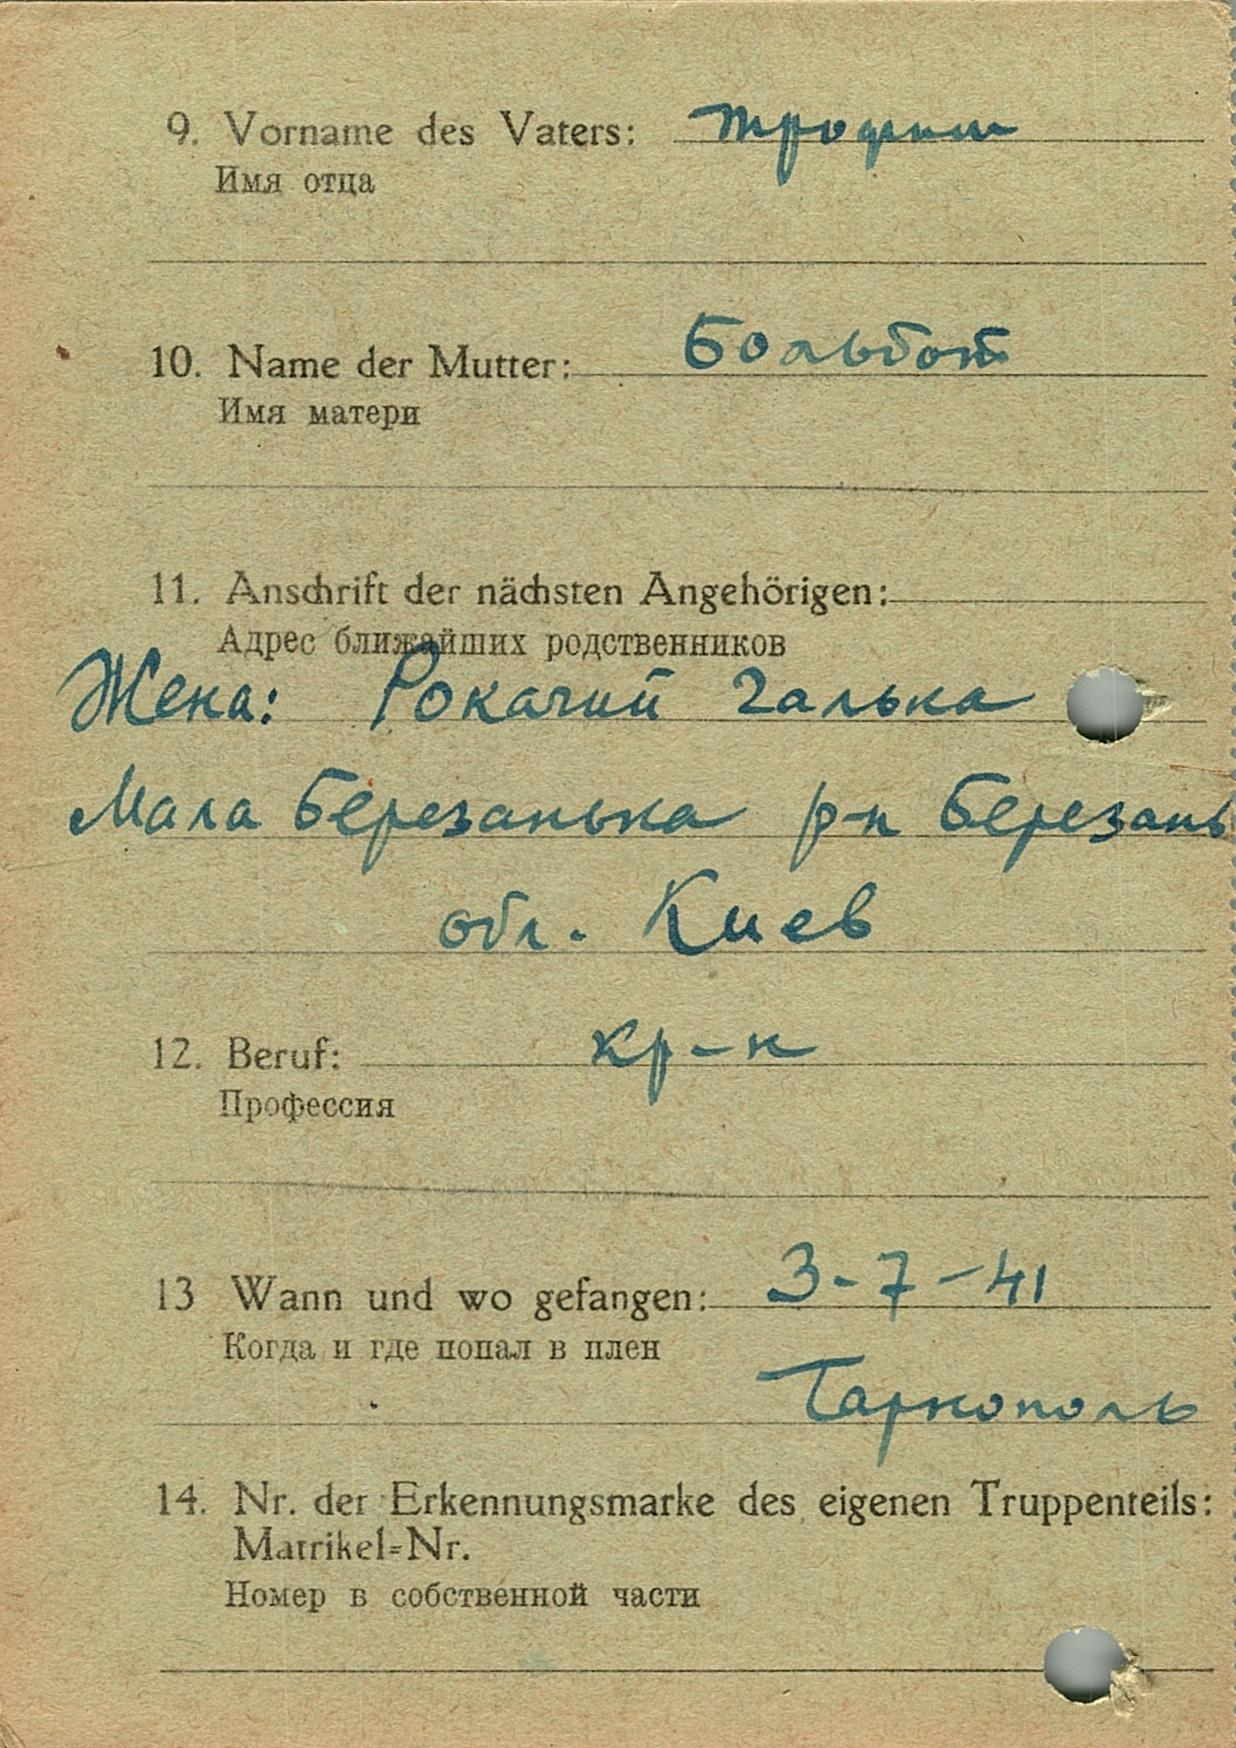 9. Vorname des Vaters: Трофим
Имя отца
10. Name der Mutter: Большот
Имя матери
11. Anschrift der nächsten Angehörigen:
Адрес ближайших родственников
Жена: Рокачий Галька
Мала Березанька р-н Березань
обл. Киев
12. Beruf: кр-н
Профессия
13 Wann und wo gefangen: 3-7-41
Когда и где попал в плен
Тарнополь
14. Nr. der Erkennungsmarke des eigenen Truppenteils:
Matrikel=Nr.
Номер в собственной части